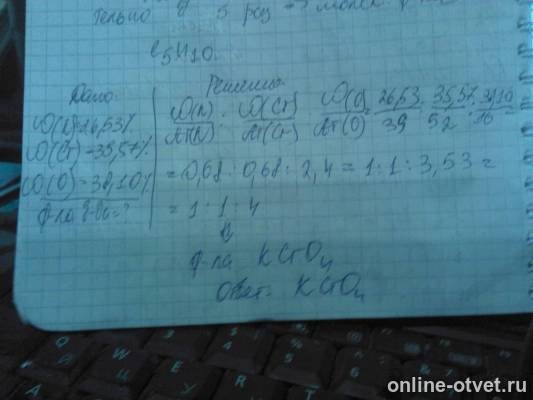 5 раз
C5H10.
Дано:
ω(K)=26,53%
ω(Cr)=35,57%
ω(O)=38,10%
ф-ла в-ва=?
Решение:
ω(K)/Ar(K) : ω(Cr)/Ar(Cr) : ω(O)/Ar(O) = 26,53/39 : 35,57/52 : 38,10/16 =
=0,68:0,68:2,4=1:1:3,53=
=1:1:4
ф-ла KCrO4
Ответ: KCrO4
online-otvet.ru